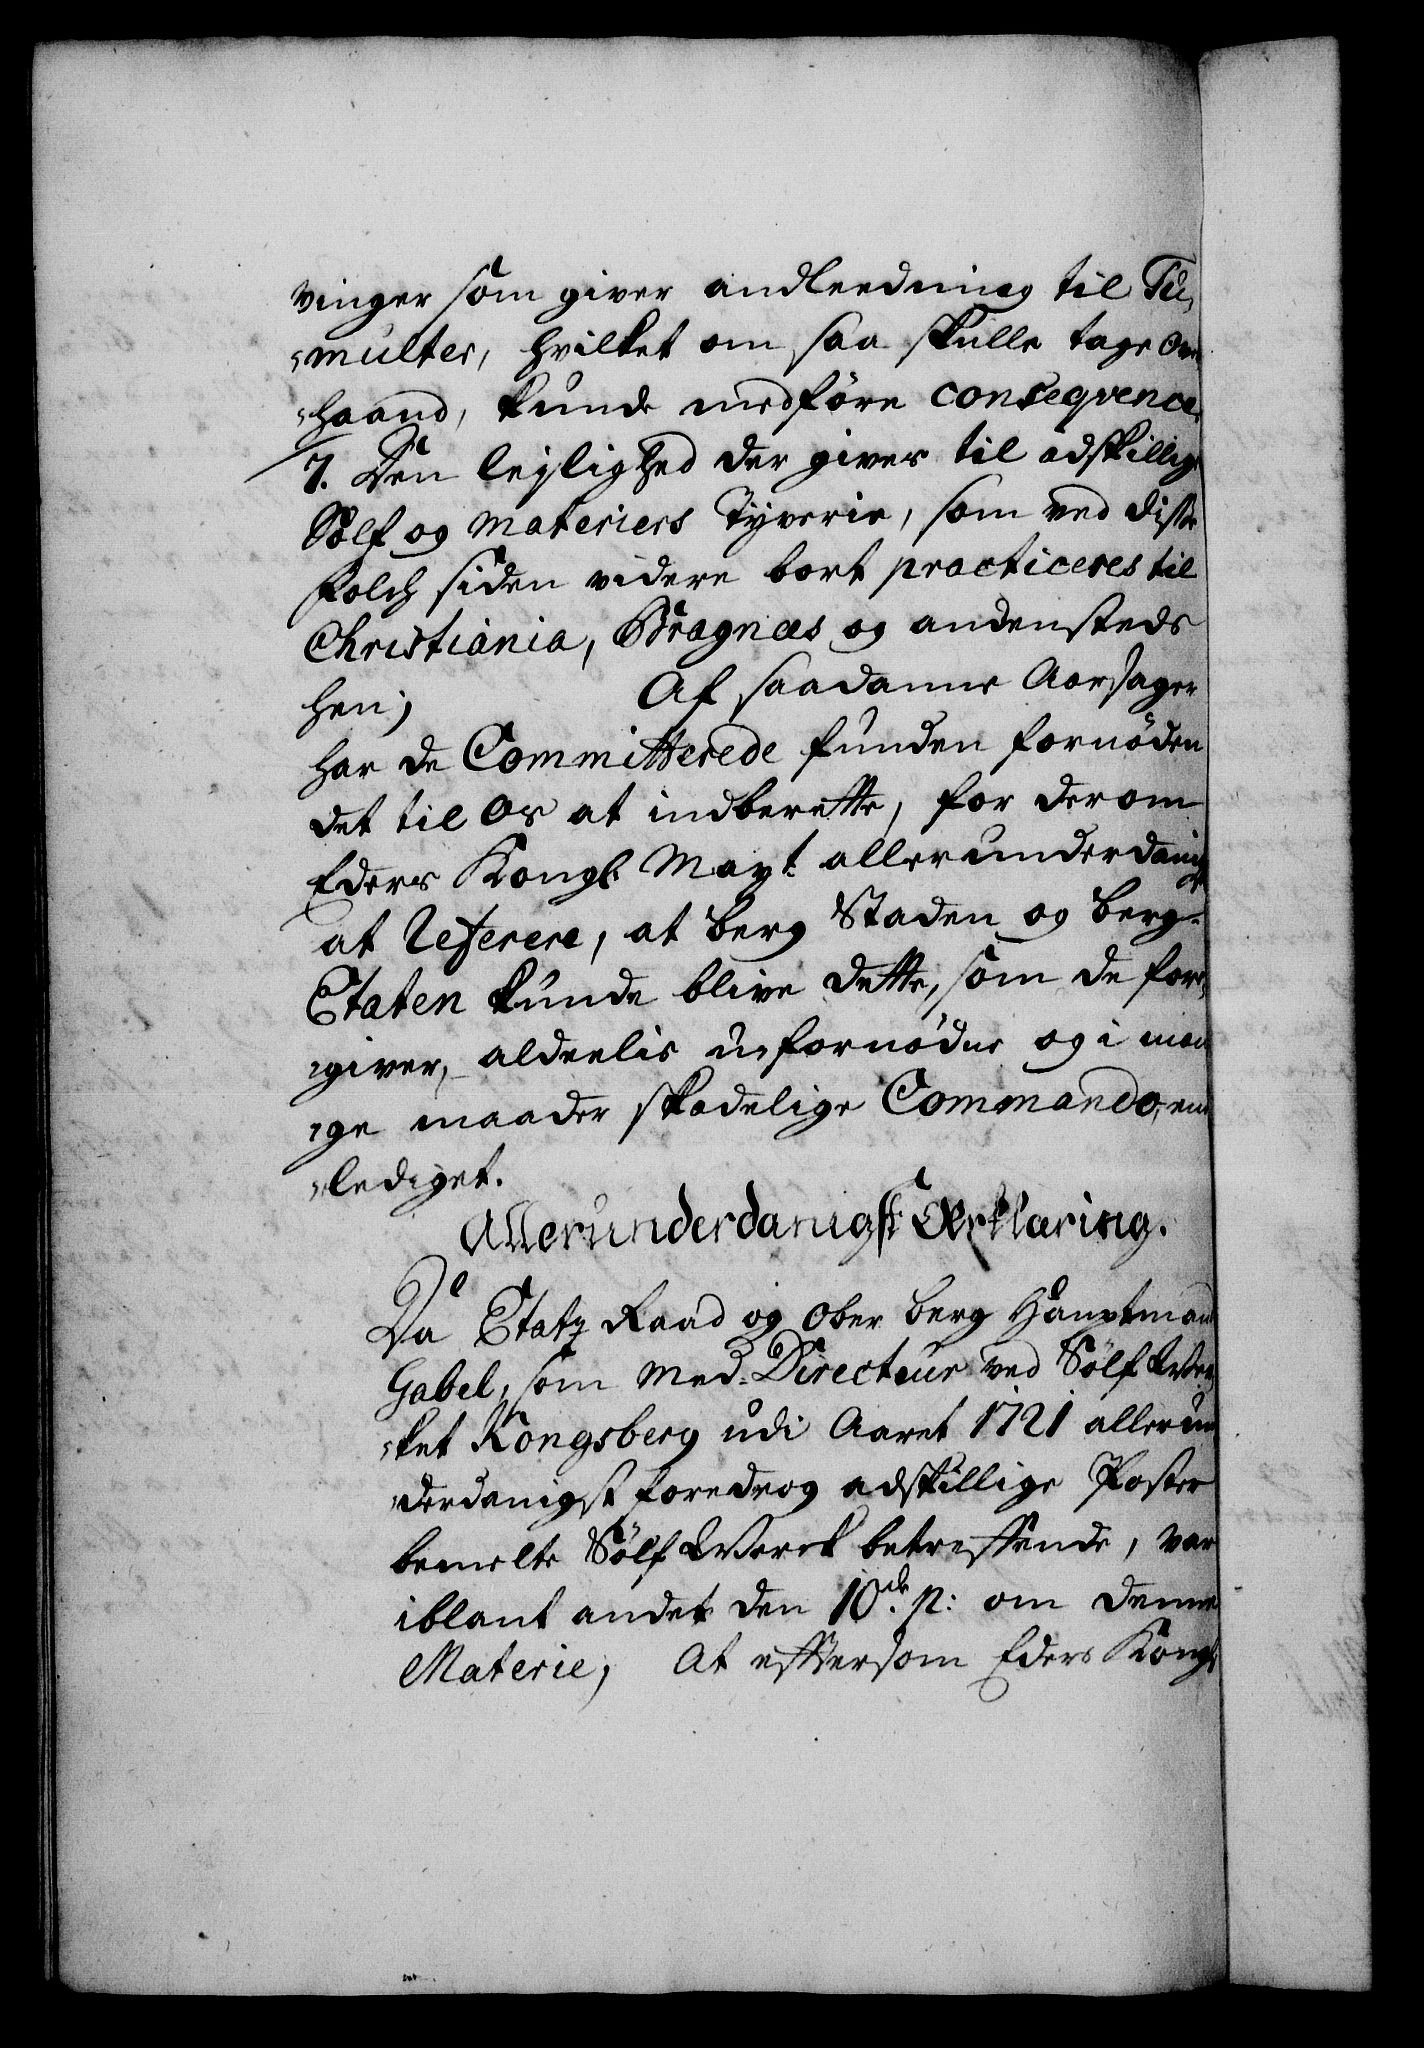 vinger som giver andleedning til Tu¬
„multer, hvilket om saa skulle tage Over
„haand, kunde medføre conseqvence.
7. Den lejlighed der gives til adskillige
Sølf og Materiers Tyverie, som ved disse
folch siden videre bort practiceres til
Christiania, Bragnæs og andensteds
hen; Af saadanne Aarsager
har de Committerede funden fornøden
det til Os at indberette, for derom
Eders Kongl. Mayt. allerunderdanigst
at Referere, at Berg Staden og Berg-
Etaten kunde blive dette, som de fore¬
„giver, aldeelis ufornødne og i man
„ge maader skadelige Commando, ent
„lediget.
Allerunderdanigst Erklæring.
Da Etatz Raad og Ober Berg Hauptmand
Gabel, som Med-Directeur ved Sølf Wer¬
„ket Kongsberg udi Aaret 1721 allerun
„derdanigst foredrog adskillige Poster
bemelte Sølf Werck betreffende, var
iblant andet den 10de p: om denne
Materie; At eftersom Eders Kongl.